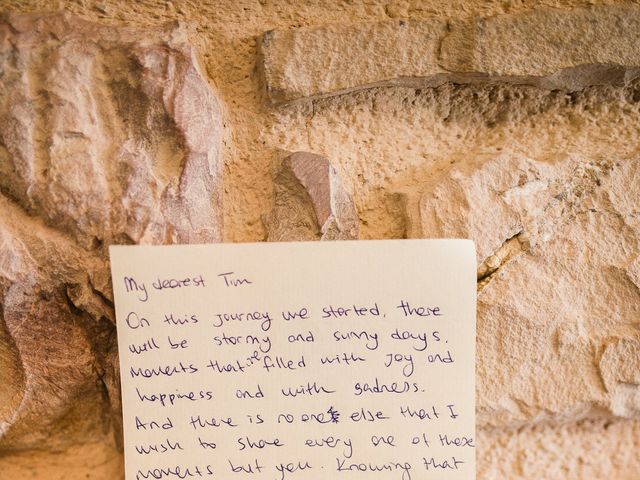 My dearest Tim
On this journey we started, there
will be stormy and sunny days.
Moments that are filled with joy and
happiness and with sadness.
And there is no one else that I
wish to share every one of these
moments but you. Knowing that